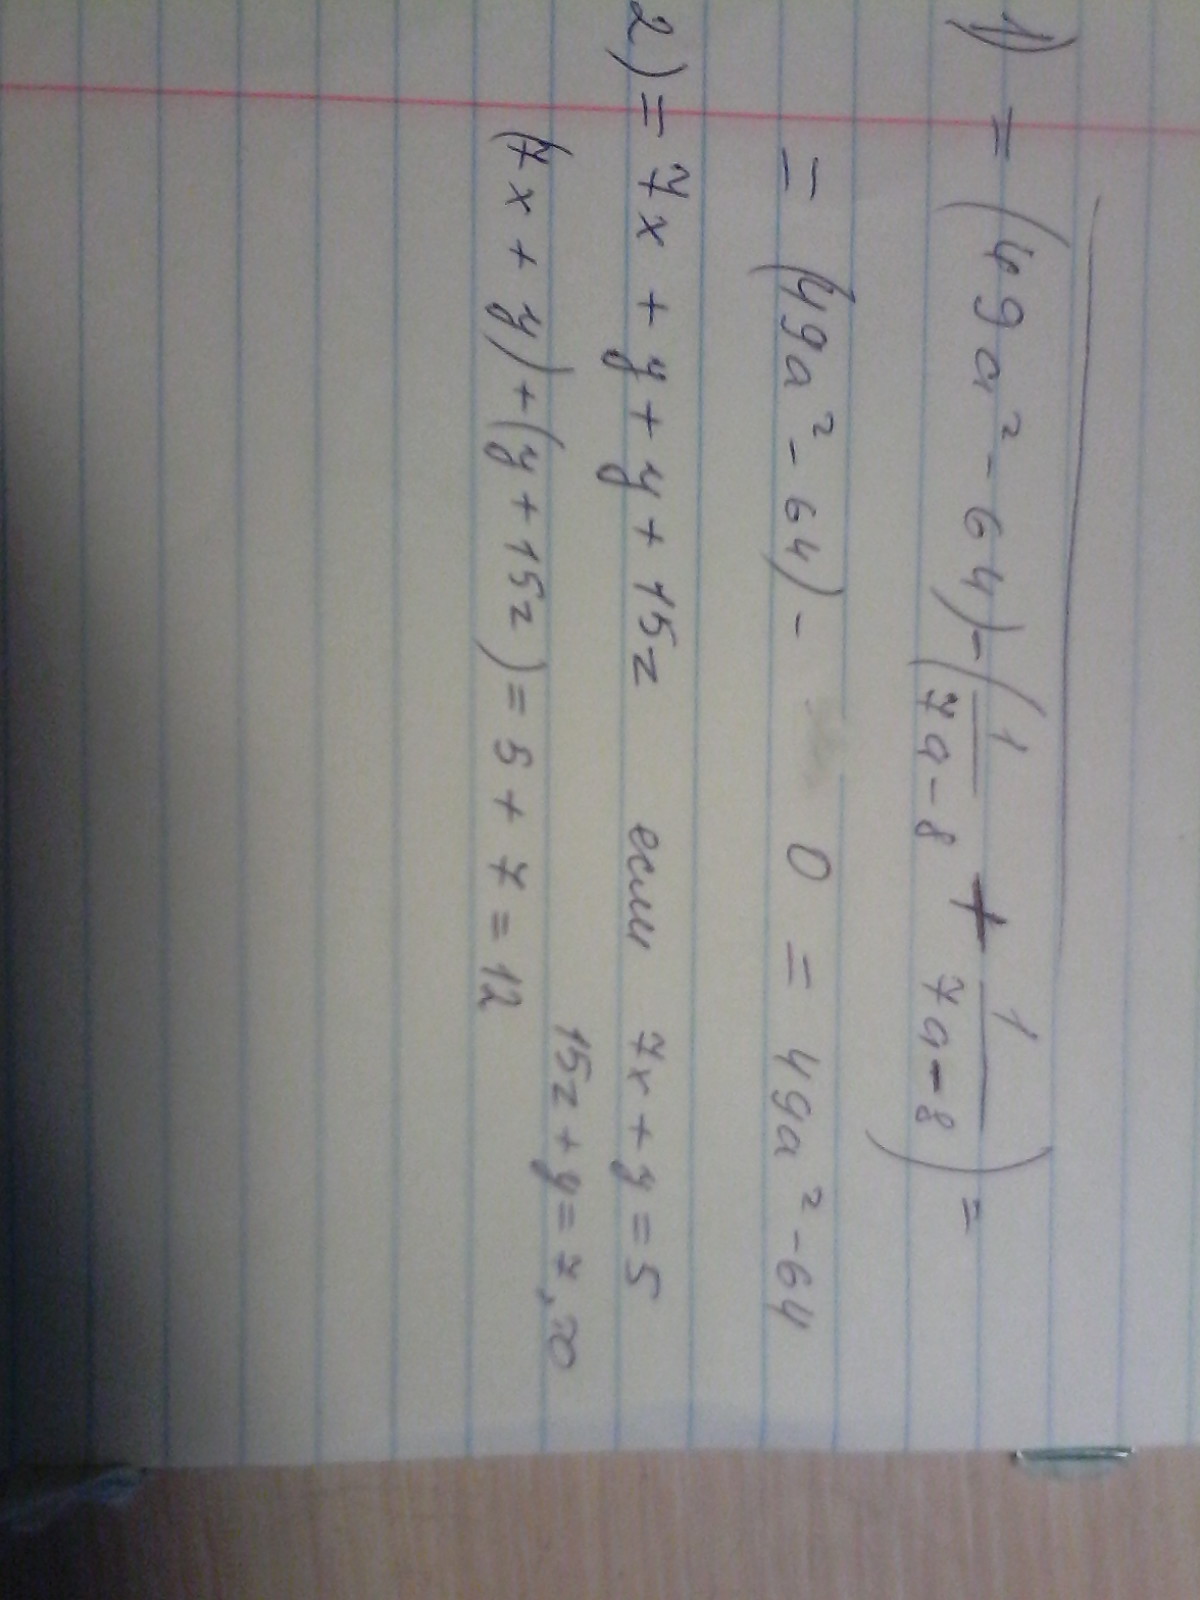 1) = (49a² - 64) - (1/7a-8 + 1/7a-8) =
= (49a² - 64) - 0 = 49a² - 64
2) = 7x + y + y + 15z если 7x + y = 5
15z + y = 7, то
(7x + y) + (y + 15z) = 5 + 7 = 12